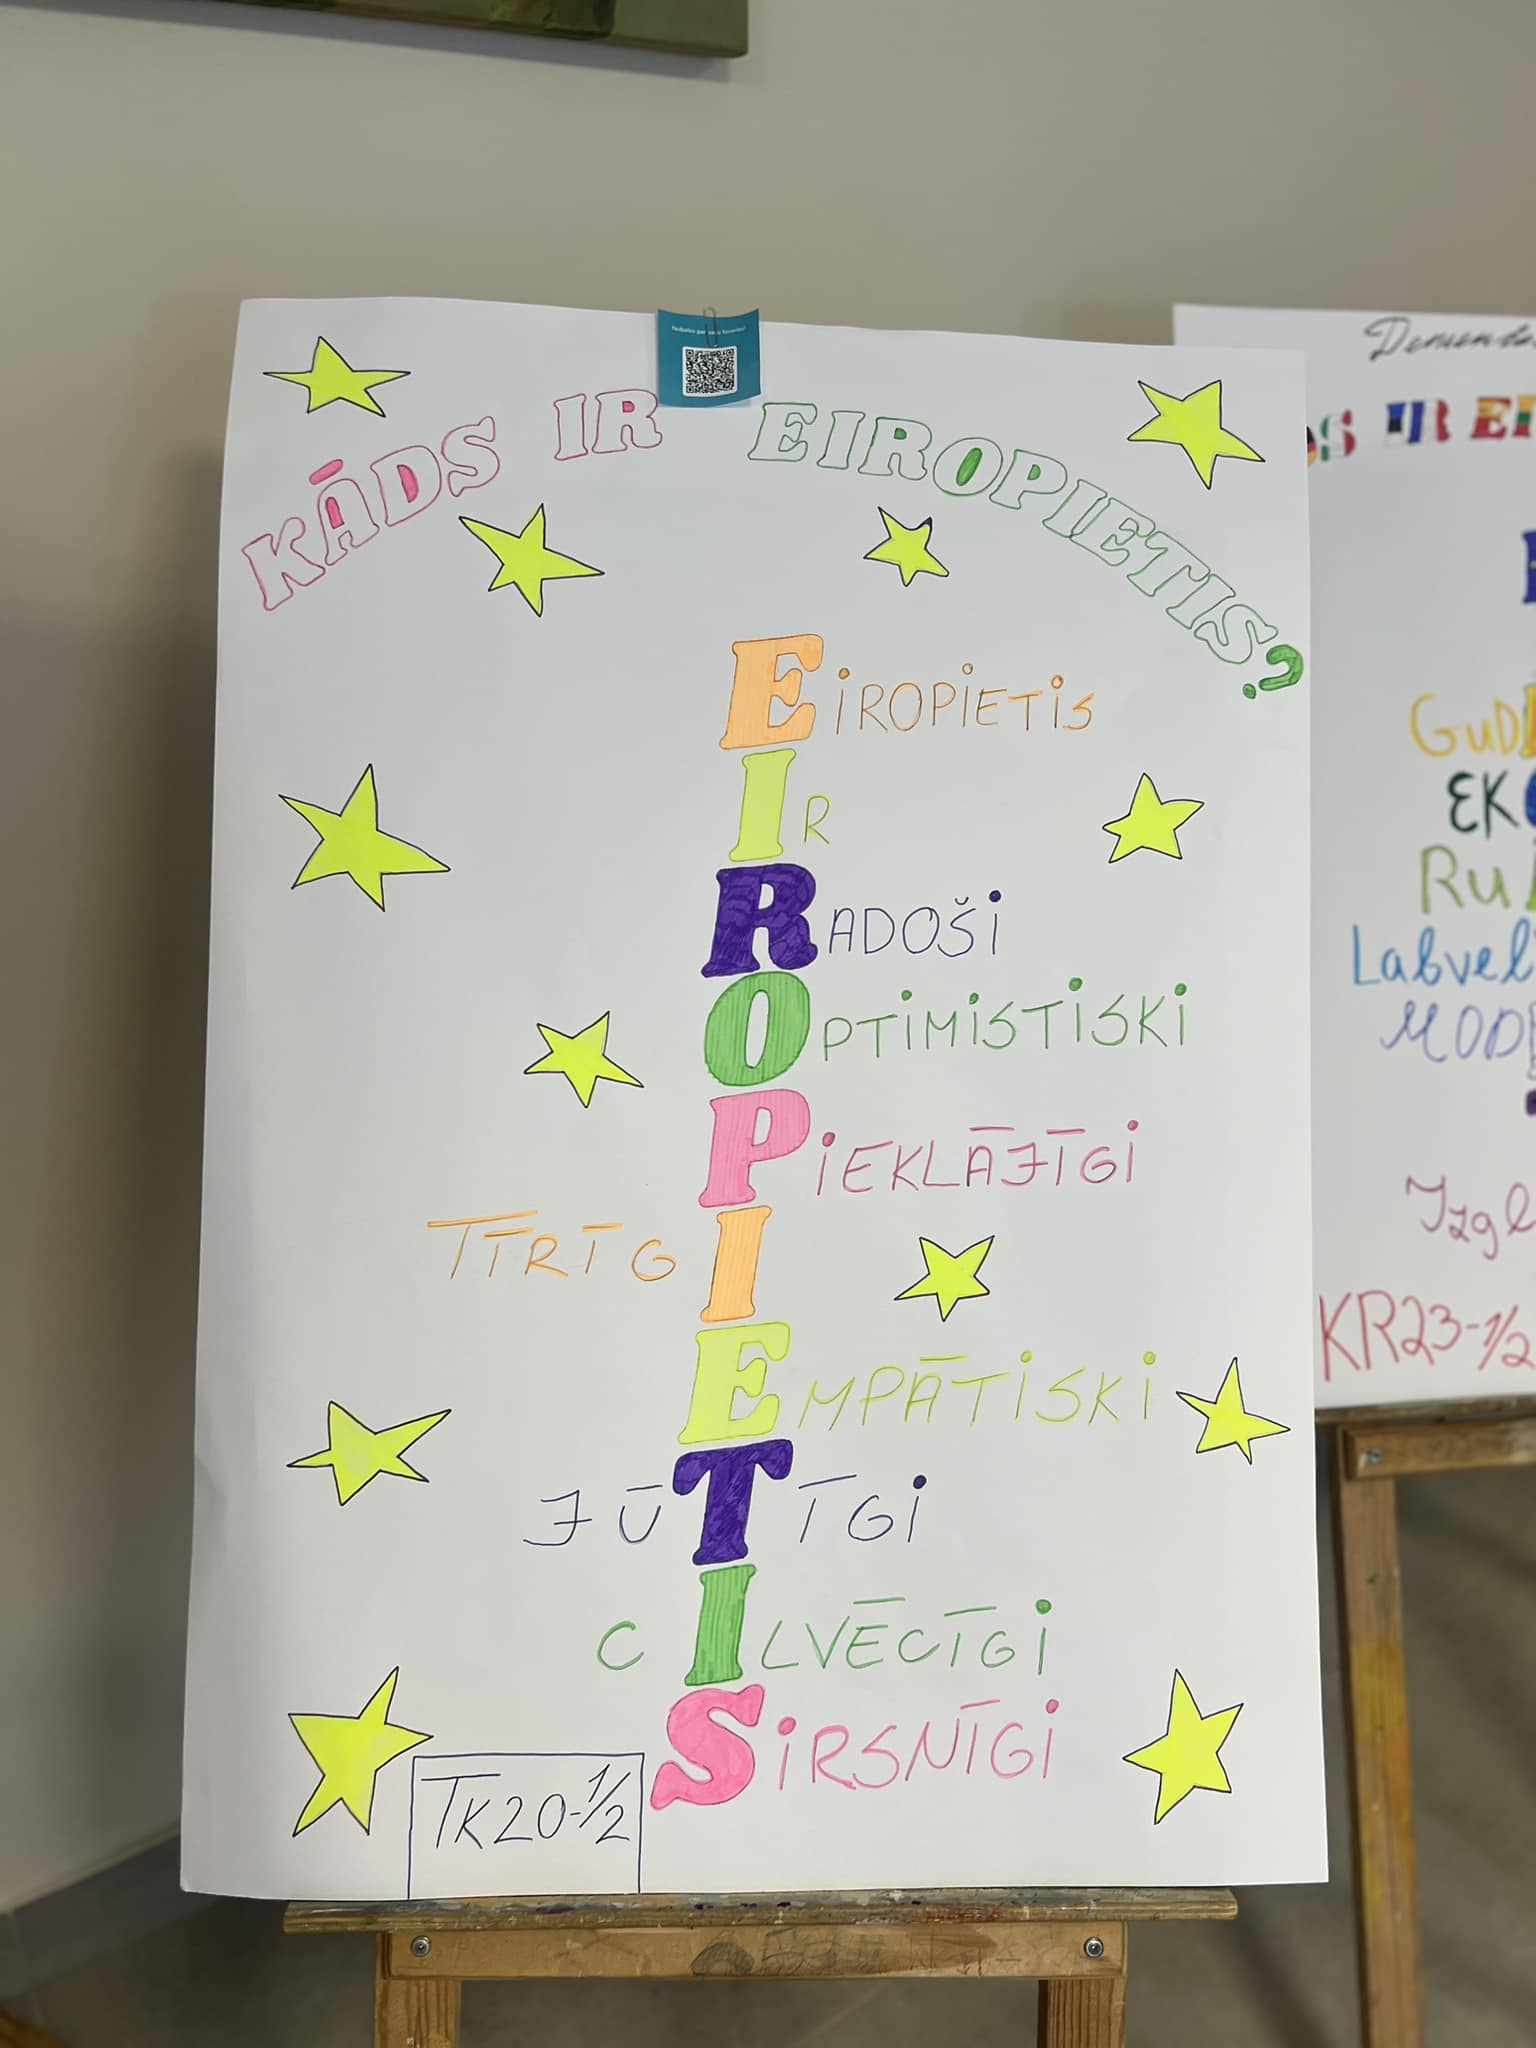 KĀDS IR EIROPIETIS?
EIROPIETIS
IR
RADOŠI
OPTIMISTISKI
PIEKLĀJĪGI
TĪRĪGI
EMPĀTISKI
JŪTĪGI
CILVĒCĪGI
SIRSNĪGI
TK20-1/2
IR EI
GUD
EKO
RU
Labvel
MOD
Izgl
KR23-1/2